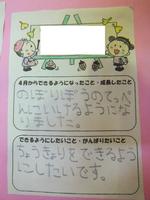 4月からできるようになったこと・成長したこと
のぼりぼうのてっぺ
んにいけるようにな
りました。
できるようにしたいこと・がんばりたいこと
ちょうきょりをできるよう
にしたいです。